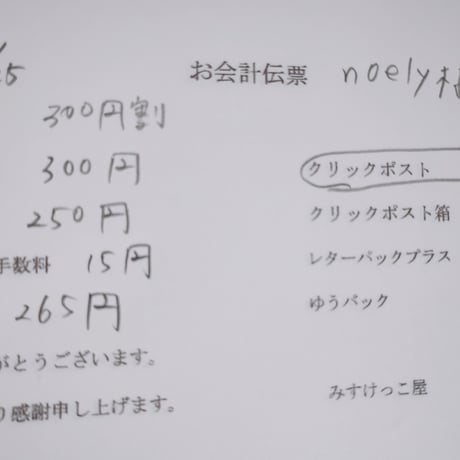 お会計伝票 noely様
300円割
300円 クリックポスト
250円 クリックポスト箱
手数料 15円 レターパックプラス
265円 ゆうパック
がとうございます。
みすけっこ屋
り感謝申し上げます。